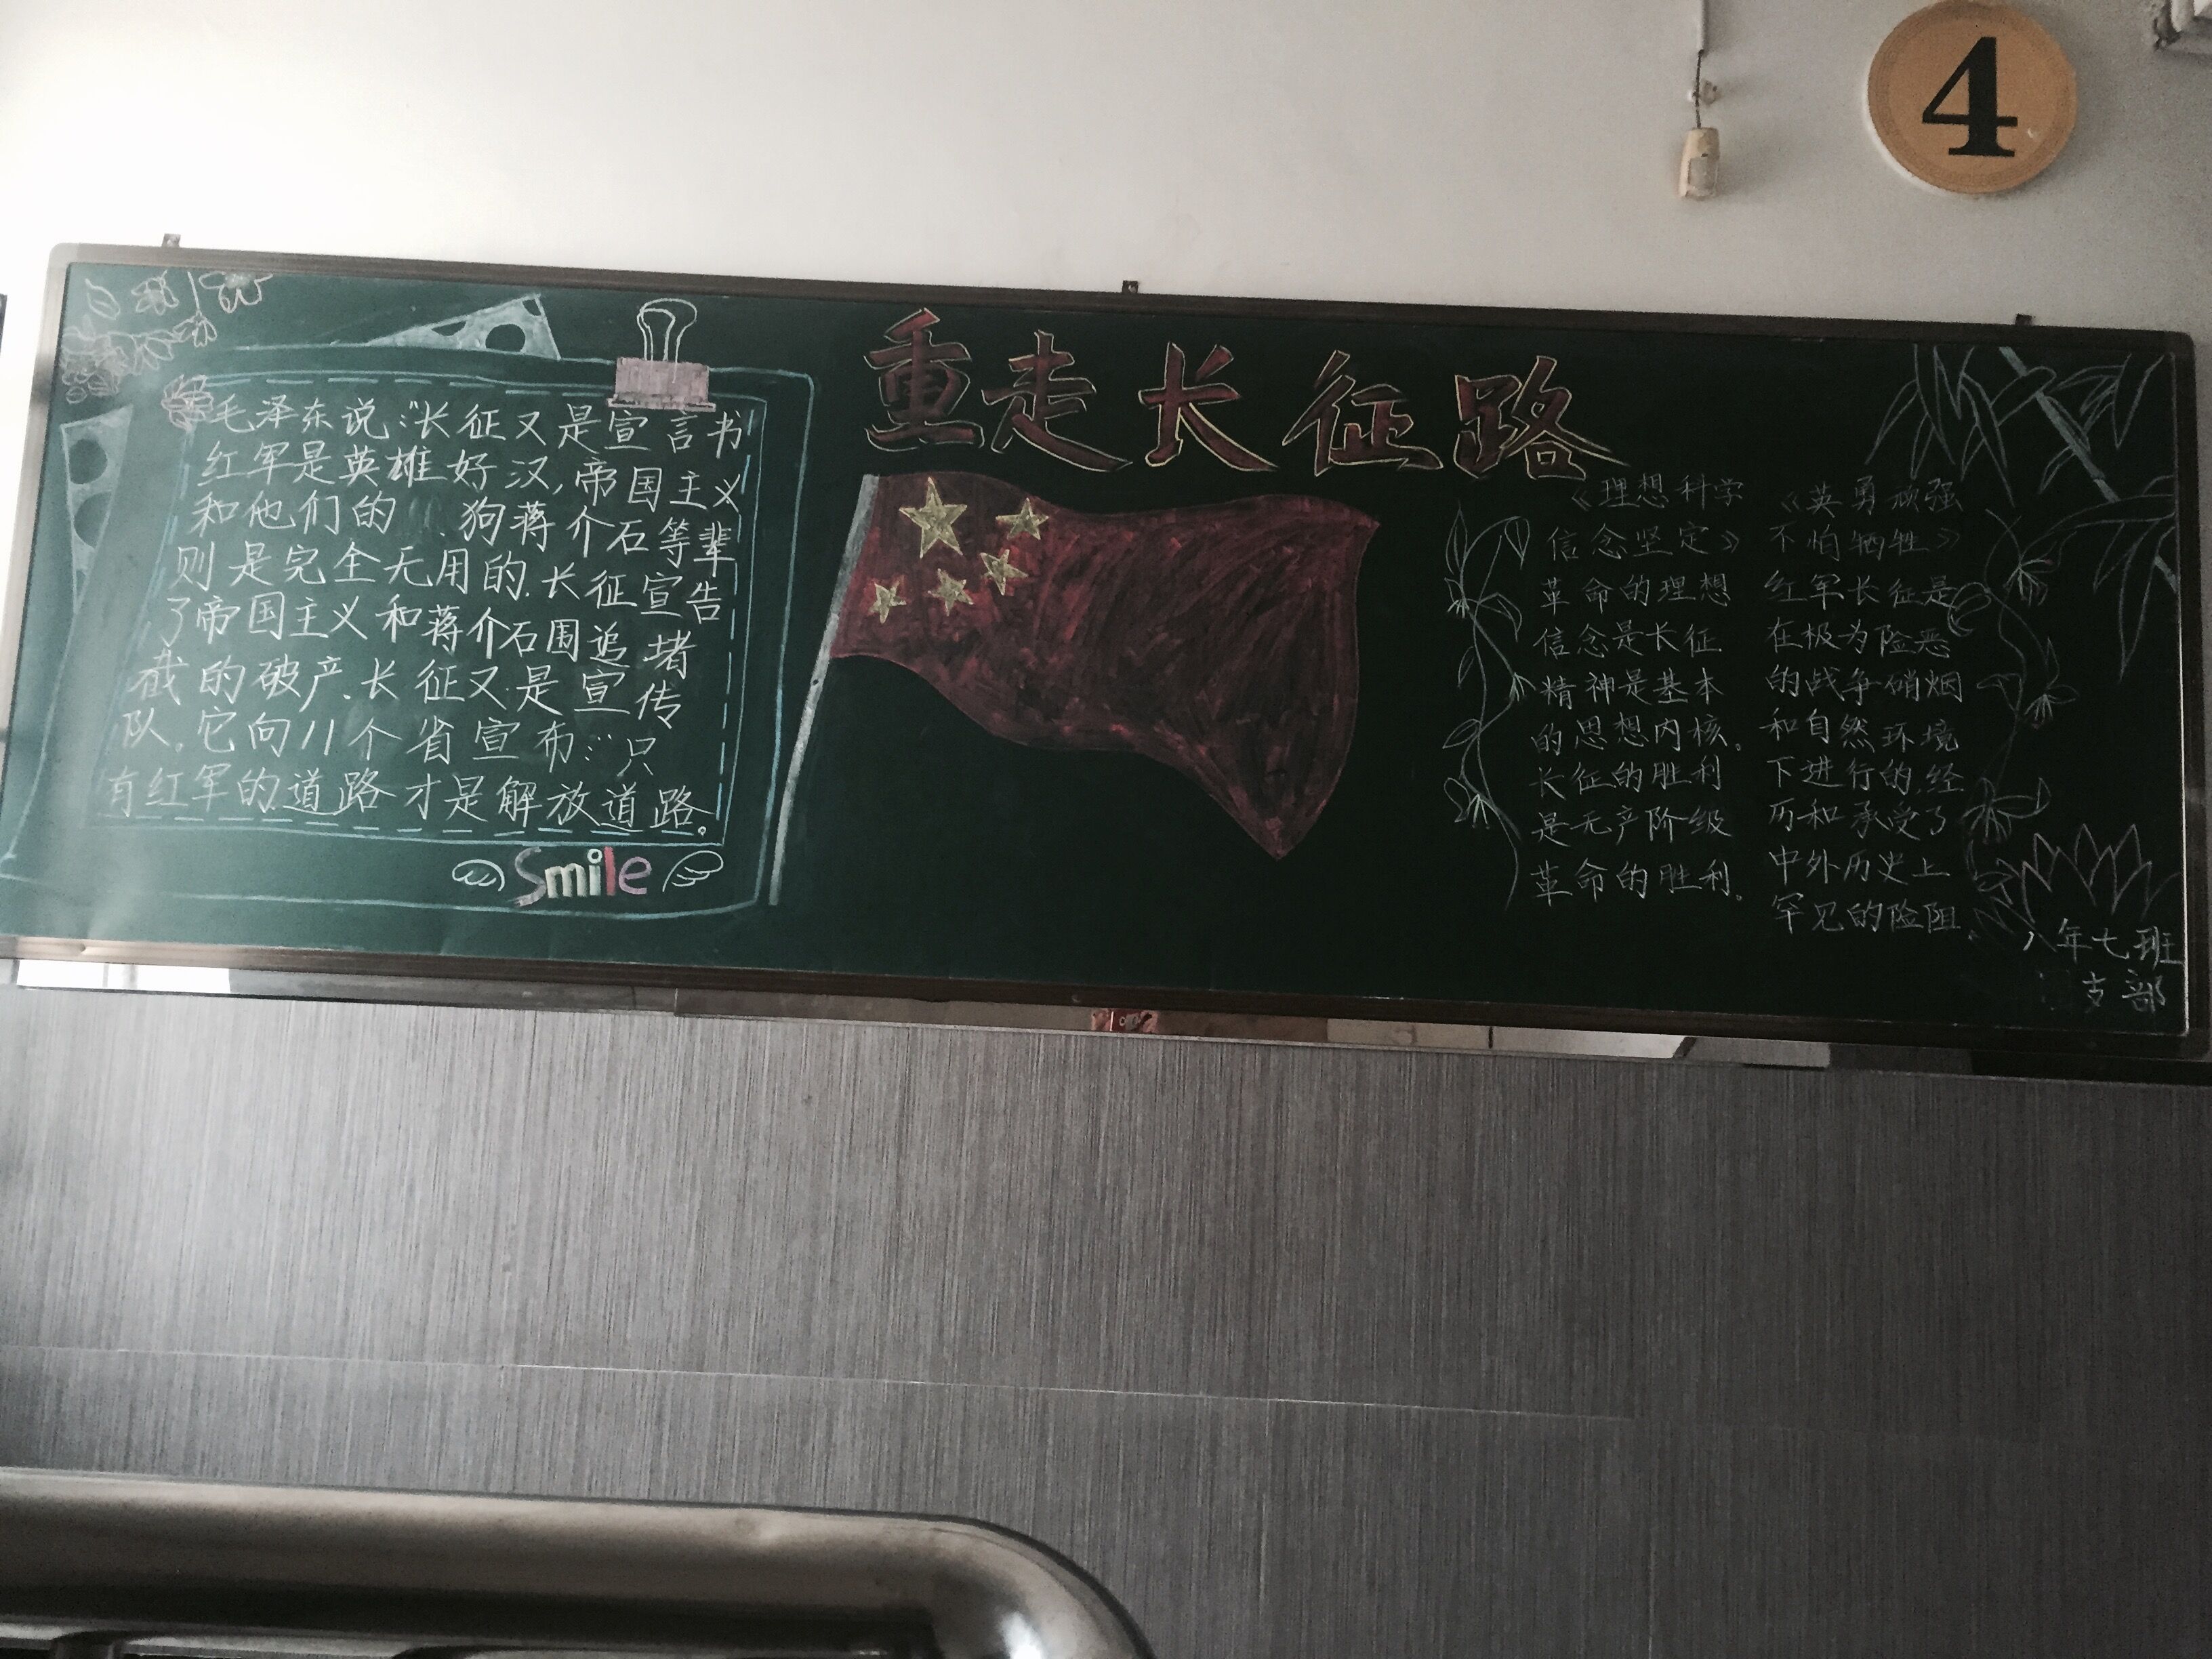 4
重走长征路
毛泽东说:"长征又是宣言书
红军是英雄好汉,帝国主义
和他们的 狗蒋介石等辈
则是完全无用的.长征宣告
了帝国主义和蒋介石围追堵
截的破产.长征又是宣传
队.它向11个省宣布:"只
有红军的道路才是解放道路。
Smile
《理想科学
信念坚定》
革命的理想
信念是长征
精神是基本
的思想内核。
长征的胜利
是无产阶级
革命的胜利。
《英勇顽强
不怕牺牲》
红军长征是
在极为险恶
的战争硝烟
和自然环境
下进行的,经
历和承受了
中外历史上
罕见的险阻
八年七班
支部